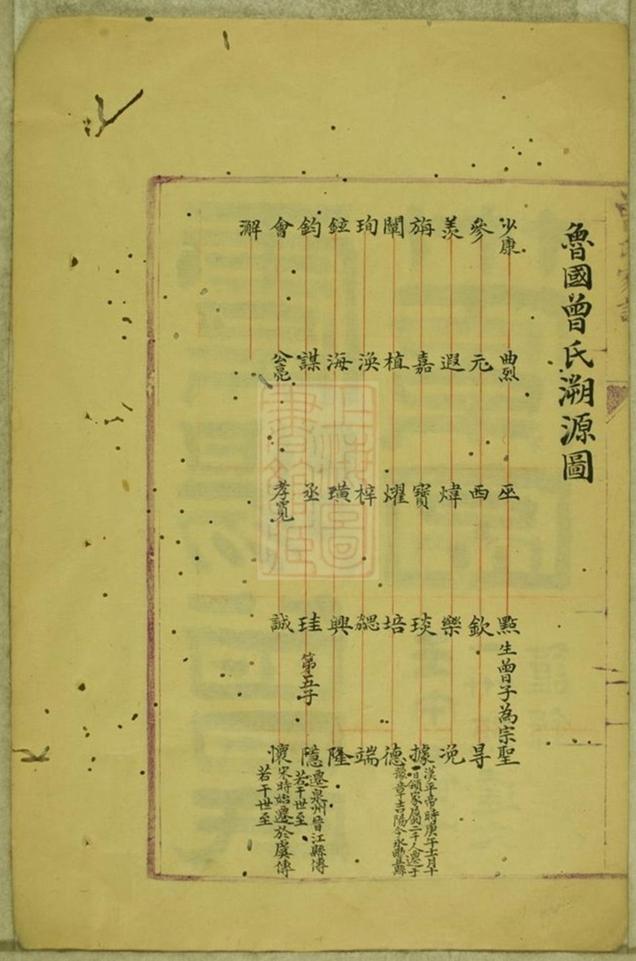 魯國曾氏溯源圖
少康 曲烈 巫 㸃生曾子為宗聖
參 元 西 欽
羡 遐 煒 樂
旃 嘉 寶 琰 據漢平帝時庚午十一月十
一日領家屬二千人遷于
豫章吉陽今永豐縣
闡 植 燿 培 德
珣 渙 梓 勰 端
鉉 海 璜 興 隆
鈞 謀 丞 珪第五子 隱遷泉州晉江縣傳
若干世至
會 公亮 孝寬 誠 懷宋時始遷於虞傳
若干世至
澥